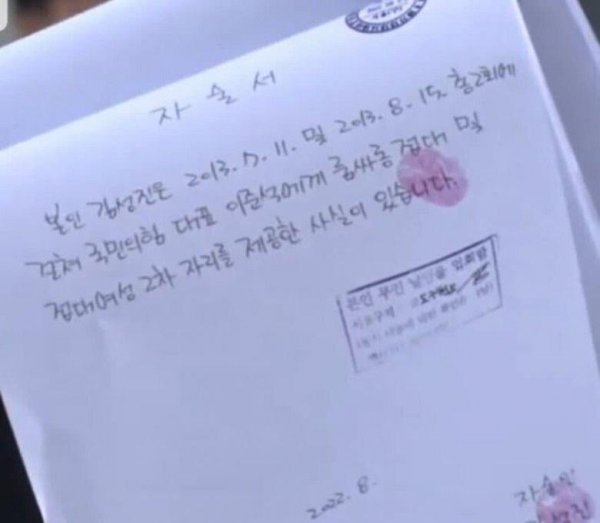 자 술 서
본인 김성진은 2013. 7. 11. 및 2013. 8. 15. 총2회에
걸쳐 국민의힘 대표 이준석에게 룸싸롱 접대 및
접대여성 2차 자리를 제공한 사실이 있습니다.
본인 무인
서울구치소
2022. 8.
자술인